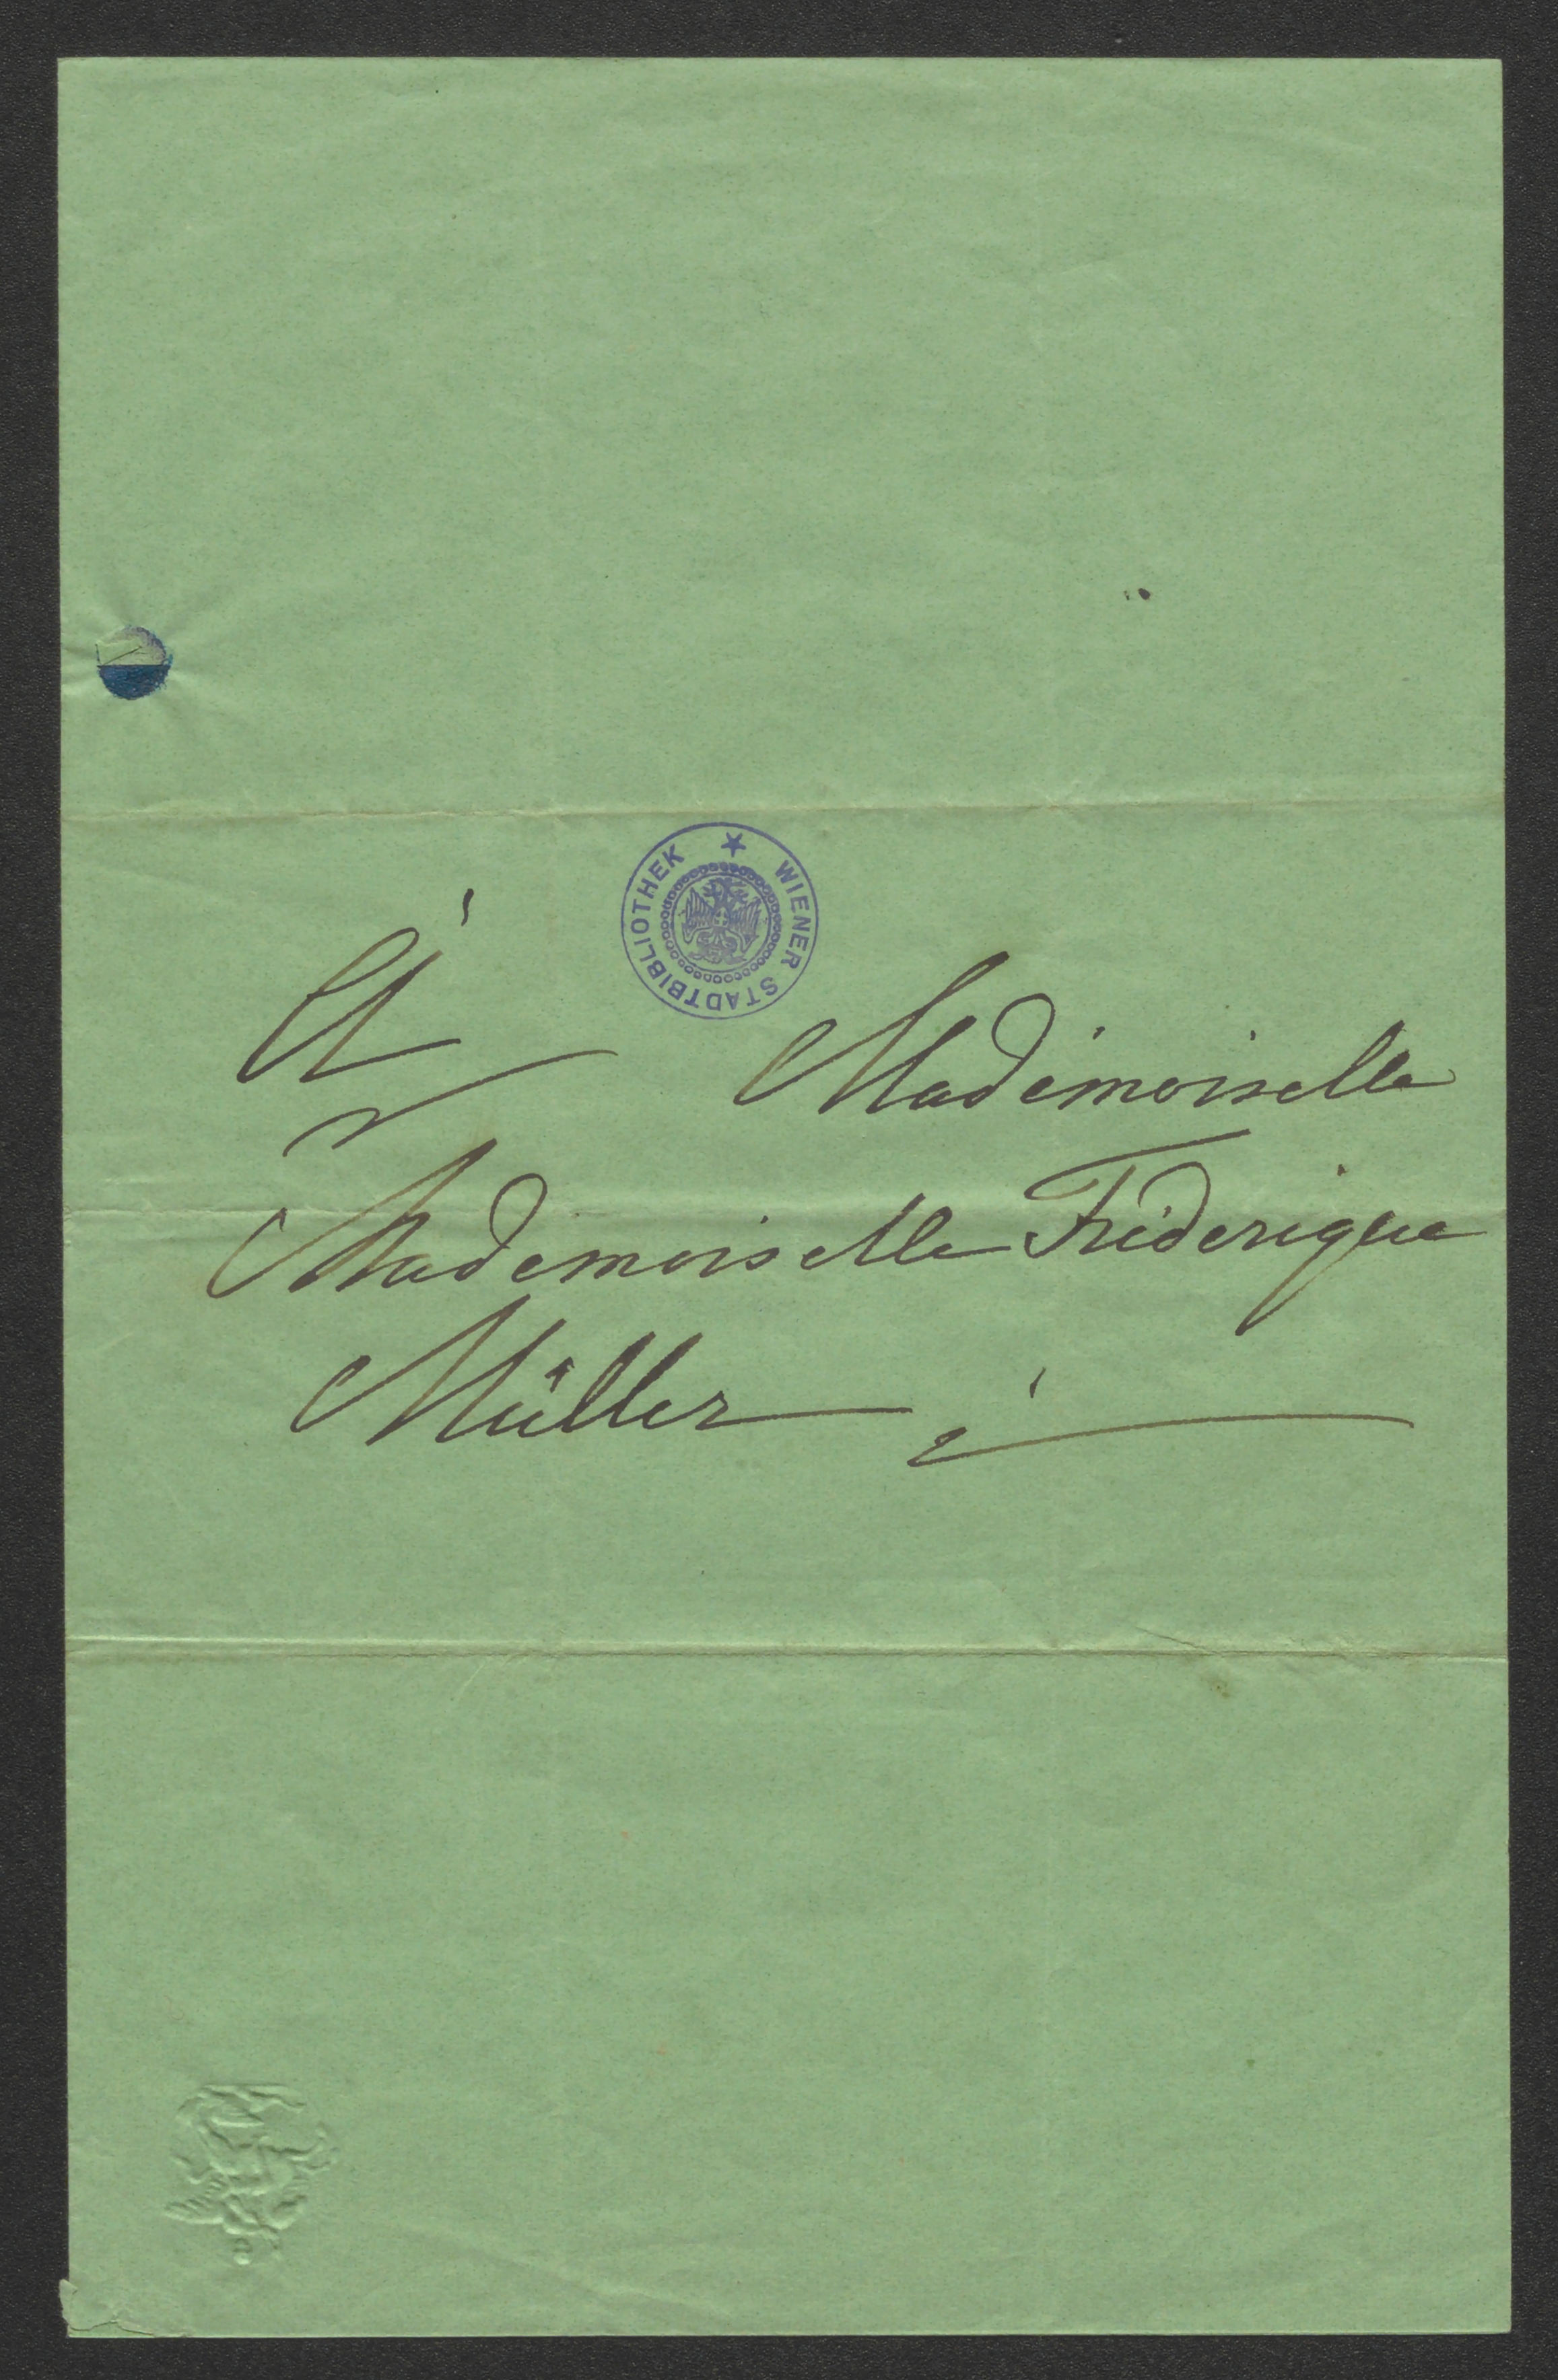 WIENER STADTBIBLIOTHEK
À Mademoiselle
Mademoiselle Fréderique
Müller